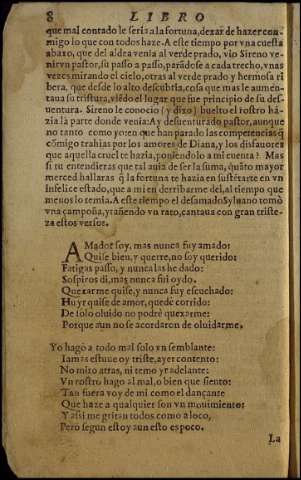 8 LIBRO
que mal contado le seria a la fortuna, dexar de hazer con-
migo lo que con todos haze. A este tiempo por vna cuesta
abaxo, que del aldea venia al verde prado, vio Sireno ve-
nir vn pastor, su passo a passo, parādose a cada trecho, vnas
vezes mirando el cielo, otras al verde prado y hermosa ri
bera, que desde lo alto descubria, cosa que mas le aumēn-
taua su tristura, viēdo el lugar que fue principio de su des-
uentura. Sireno le conocio (y dixo) buelto el rostro ha-
zia la parte donde venia: Ay desuenturado pastor, aunque
no tanto como yo: en que han parado las competencias q̄
cōmigo trahias por los amores de Diana, y los disfauores
que aquella cruel te hazia, poniendolo a mi cuenta? Mas
si tu entendieras que tal auia de ser la suma, quāto mayor
merced hallaras q̄ la fortuna te hazia en sustētarte en vn
infelice estado, que a mi en derribarme del, al tiempo que
menos lo temia. A este tiempo el desamado Syluano tomò
vna çampoña, y tañendo vn rato, cantaua con gran triste-
za estos versos.
AMador soy, mas nunca fuy amado:
Quise bien, y querre, no soy querido:
Fatigas passo, y nunca las he dado:
Sospiros di, mas nunca fui oydo.
Quexarme quise, y nunca fuy escuchado:
Huyr quise de amor, quedè corrido:
De solo oluido no podrè quexarme:
Porque aun no se acordaron de oluidarme.
Yo hago a todo mal solo vn semblante:
Iamas estuue oy triste, ayer contento:
No miro atras, ni temo yr adelante:
Vn rostro hago al mal, o bien que siento:
Tan fuera voy de mi como el dançante
Que haze a qualquier son vn mouimiento:
Y assi me gritan todos como a loco,
Pero segun estoy aun esto es poco.
La